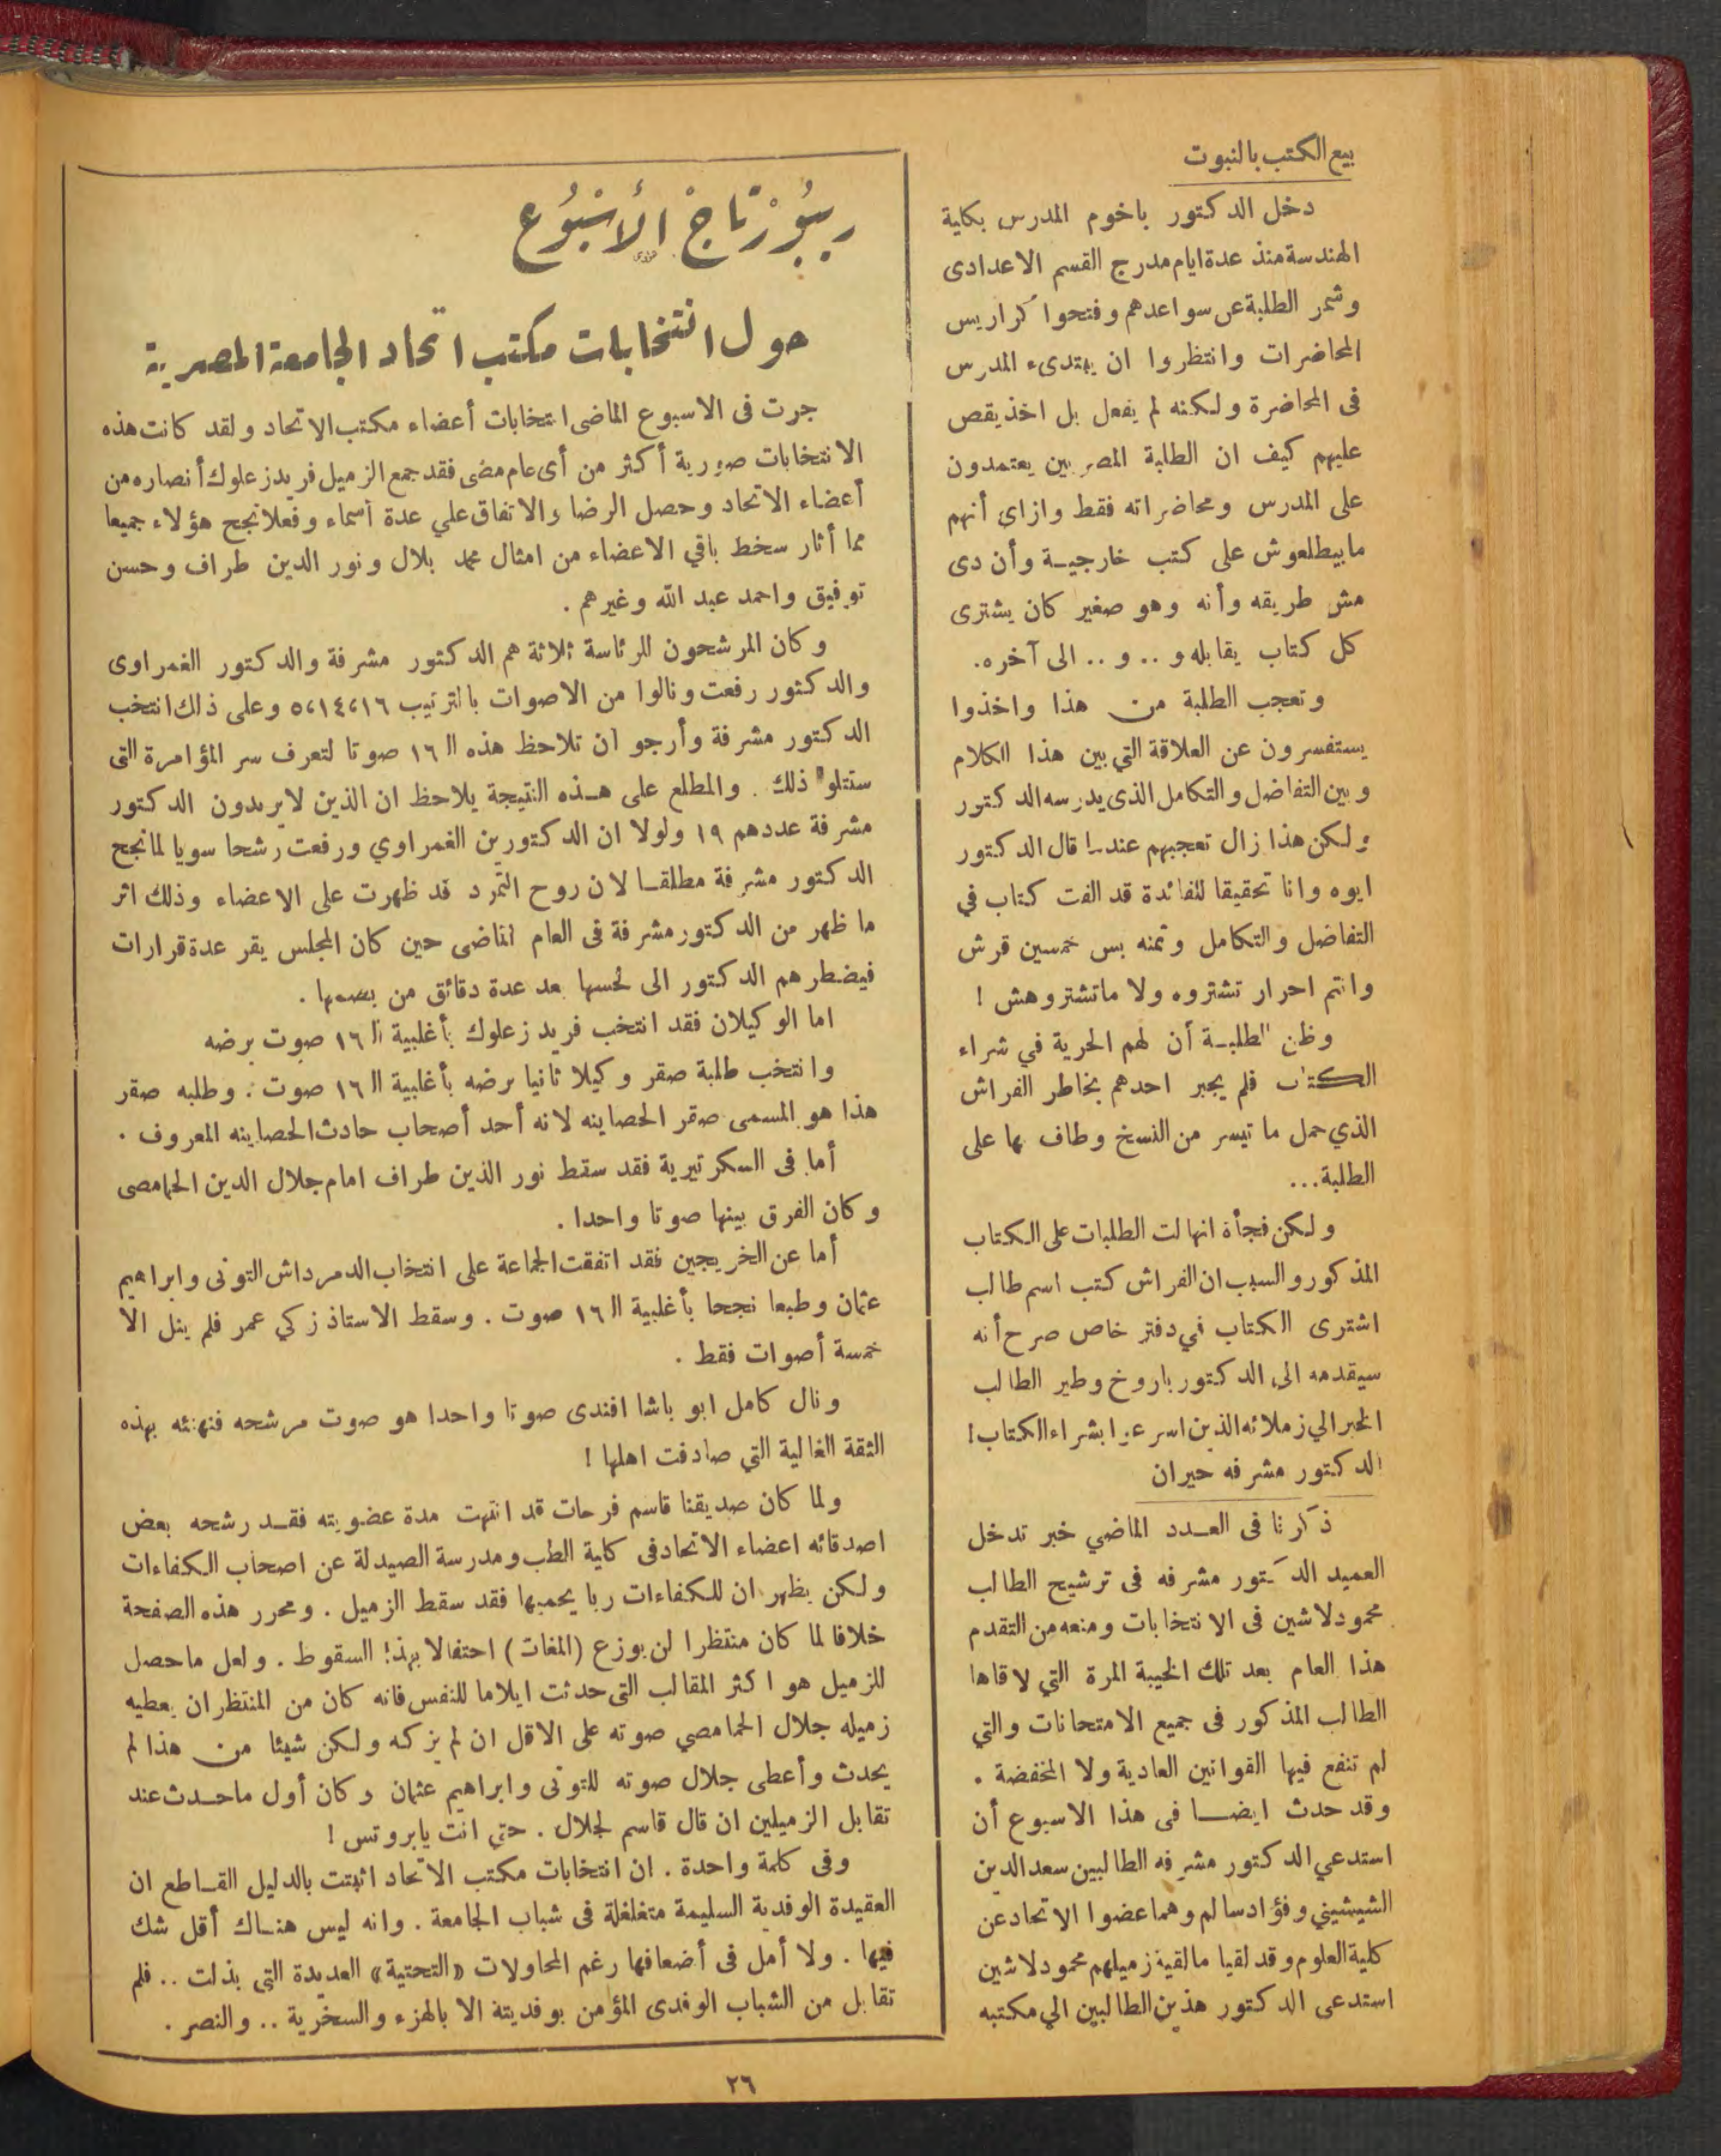 بيع الكتب بالنبوت
دخل الدكتور باخوم المدرس بكلية
الهندسة منذ عدة ايام مدرج القسم الاعدادى
وشمر الطلبة عن سواعدهم وفتحوا كراريس
المحاضرات وانتظروا ان يبتدىء المدرس
فى المحاضرة ولكنه لم يفعل بل اخذ يقص
عليهم كيف ان الطلبة المصريين يعتمدون
على المدرس ومحاضراته فقط وازاى أنهم
مابيطلعوش على كتب خارجية وأن دى
مش طريقه وأنه وهو صغير كان يشترى
كل كتاب يقابله و .. و .. الى آخره.
وتعجب الطلبة من هذا واخذوا
يستفسرون عن العلاقة التي بين هذا الكلام
وبين التفاضل والتكامل الذى يدرسه الدكتور
ولكن هذا زال تعجبهم عندما قال الدكتور
ايوه وانا تحقيقا للفائدة قد الفت كتاب في
التفاضل والتكامل وثمنه بس خمسين قرش
وانتم احرار تشتروه ولا ماتشتروهش !
وظن الطلبة أن لهم الحرية في شراء
الكتاب فلم يجبر احدهم بخاطر الفراش
الذي حمل ما تيسر من النسخ وطاف بها على
الطلبة...
ولكن فجأة انهالت الطلبات على الكتاب
المذكور والسبب ان الفراش كتب اسم طالب
اشترى الكتاب في دفتر خاص صرح أنه
سيقدمه الى الدكتور باروخ وطير الطالب
الخبر الي زملائه الذين اسرعوا بشراء الكتاب!
الدكتور مشرفه حيران
ذكرنا فى العدد الماضي خبر تدخل
العميد الدكتور مشرفه فى ترشيح الطالب
محمود لاشين فى الانتخابات ومنعه من التقدم
هذا العام بعد تلك الخيبة المرة التي لاقاها
الطالب المذكور فى جميع الامتحانات والتي
لم تنفع فيها القوانين العادية ولا المخفضة .
وقد حدث ايضا فى هذا الاسبوع أن
استدعي الدكتور مشرفه الطالبين سعد الدين
الشيشيني وفؤاد سالم وهما عضوا الاتحاد عن
كلية العلوم وقد لقيا مالقيه زميلهم محمود لاشين
استدعى الدكتور هذين الطالبين الي مكتبه
ريبورتاج الأسبوع
حول انتخابات مكتب اتحاد الجامعة المصرية
جرت فى الاسبوع الماضى انتخابات أعضاء مكتب الاتحاد ولقد كانت هذه
الانتخابات صورية أكثر من أى عام مضى فقد جمع الزميل فريد زعلوك أنصاره من
أعضاء الاتحاد وحصل الرضا والاتفاق علي عدة أسماء وفعلا نجح هؤلاء جميعا
مما أثار سخط باقي الاعضاء من امثال محمد بلال ونور الدين طراف وحسن
توفيق واحمد عبد الله وغيرهم .
وكان المرشحون للرئاسة ثلاثة هم الدكتور مشرفة والدكتور الغمراوى
والدكتور رفعت ونالوا من الاصوات بالترتيب ١٦،١٤،٥ وعلى ذلك انتخب
الدكتور مشرفة وأرجو ان تلاحظ هذه الـ ١٦ صوتا لتعرف سر المؤامرة التى
ستتلو ذلك . والمطلع على هذه النتيجة يلاحظ ان الذين لايريدون الدكتور
مشرفة عددهم ١٩ ولولا ان الدكتورين الغمراوي ورفعت رشحا سويا لما نجح
الدكتور مشرفة مطلقا لان روح التمرد قد ظهرت على الاعضاء وذلك اثر
ما ظهر من الدكتور مشرفة فى العام الماضى حين كان المجلس يقر عدة قرارات
فيضطرهم الدكتور الى لحسها بعد عدة دقائق من بصمها .
اما الوكيلان فقد انتخب فريد زعلوك بأغلبية الـ ١٦ صوت برضه
وانتخب طلبة صقر وكيلا ثانيا برضه بأغلبية الـ ١٦ صوت . وطلبه صقر
هذا هو المسمى صقر الحصاينه لانه أحد أصحاب حادث الحصاينه المعروف .
أما فى السكرتيرية فقد سقط نور الدين طراف امام جلال الدين الحمامصى
وكان الفرق بينها صوتا واحدا .
أما عن الخريجين فقد اتفقت الجماعة على انتخاب الدمرداش التونى وابراهيم
عثمان وطبعا نجحا بأغلبية الـ ١٦ صوت . وسقط الاستاذ زكي عمر فلم ينل الا
خمسة أصوات فقط .
ونال كامل ابو باشا افندى صوتا واحدا هو صوت مرشحه فنهنئه بهذه
الثقة الغالية التي صادفت اهلها !
ولما كان صديقنا قاسم فرحات قد انتهت مدة عضويته فقد رشحه بعض
اصدقائه اعضاء الاتحاد فى كلية الطب ومدرسة الصيدلة عن اصحاب الكفاءات
ولكن يظهر ان للكفاءات ربا يحميها فقد سقط الزميل . ومحرر هذه الصفحة
خلافا لما كان منتظرا لن يوزع (المغات) احتفالا بهذا السقوط . ولعل ماحصل
للزميل هو اكثر المقالب التى حدثت ايلاما للنفس فانه كان من المنتظر ان يعطيه
زميله جلال الحمامصي صوته على الاقل ان لم يزكه ولكن شيئا من هذا لم
يحدث وأعطى جلال صوته للتونى وابراهيم عثمان وكان أول ماحدث عند
تقابل الزميلين ان قال قاسم لجلال . حتى انت يابروتس !
وفى كلمة واحدة . ان انتخابات مكتب الاتحاد اثبتت بالدليل القاطع ان
العقيدة الوفدية السليمة متغلغلة فى شباب الجامعة . وانه ليس هناك أقل شك
فيها . ولا أمل فى أضعافها رغم المحاولات «التحتية» العديدة التى بذلت .. فلم
تقابل من الشباب الوفدى المؤمن بوفديته الا بالهزء والسخرية .. والنصر .
٢٦